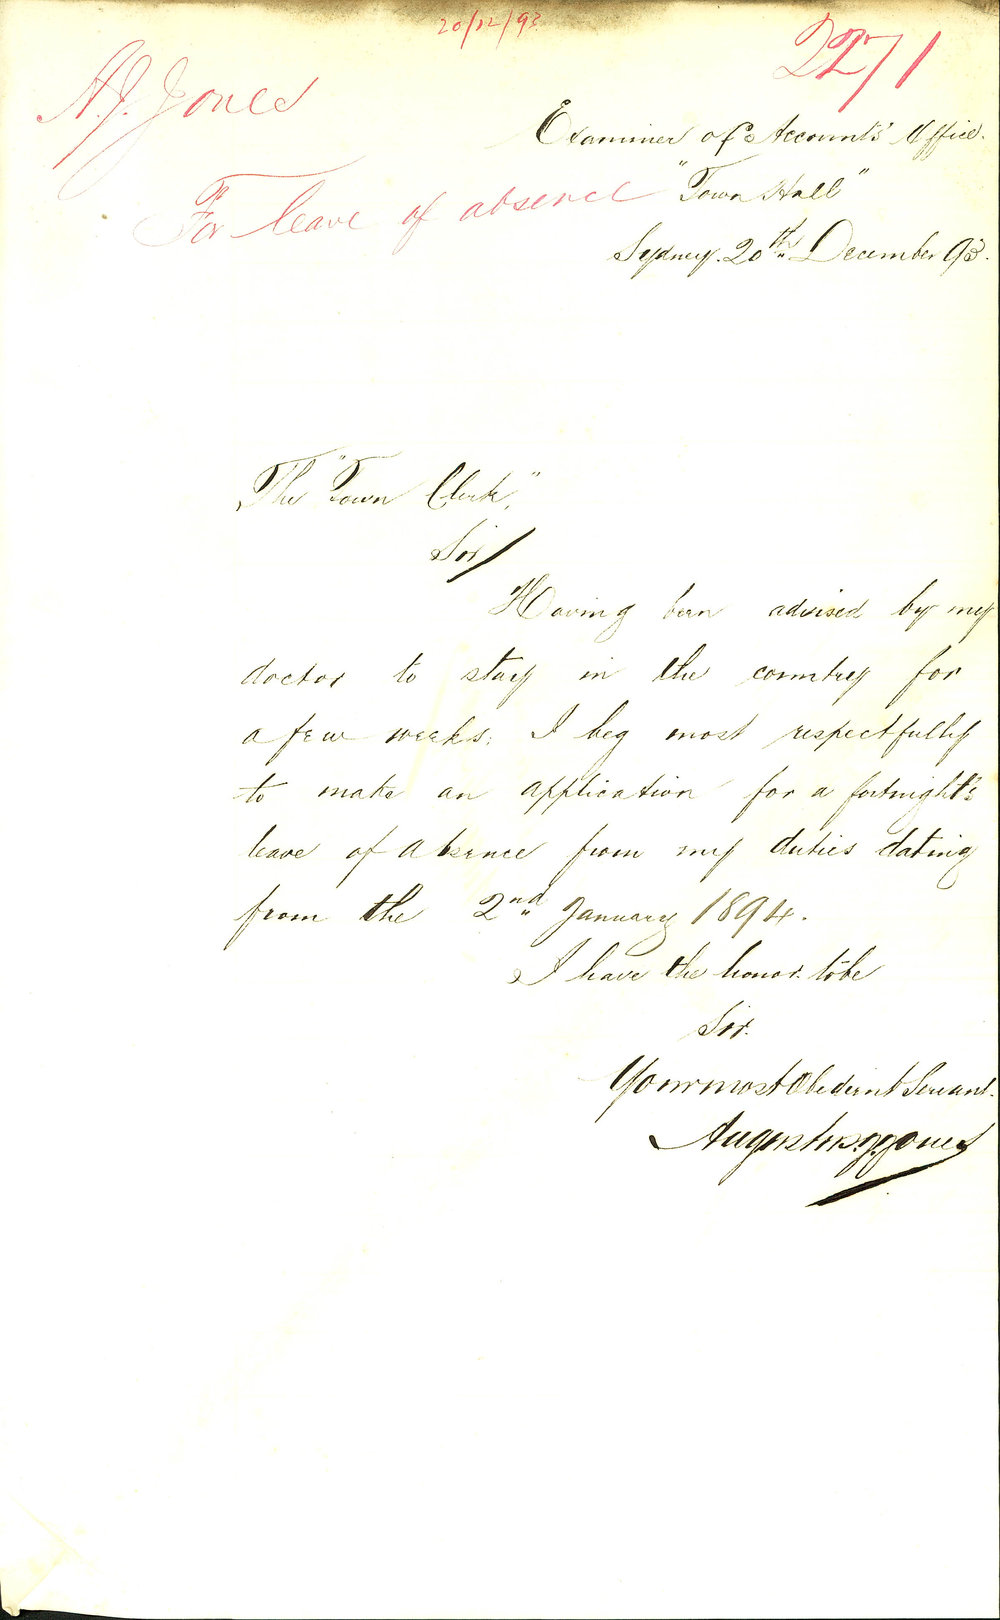 20/12/93
2271
A.J. Jones
For leave of absence
Examiner of Accounts' Office.
"Town Hall"
Sydney. 20th December 93.
The "Town Clerk,"
Sir/
Having been advised by my
doctor to stay in the country for
a few weeks, I beg most respectfully
to make an application for a fortnight's
leave of absence from my duties dating
from the 2nd January 1894.
I have the honor to be
Sir.
Your most Obedient Servant.
Augustus. J. Jones